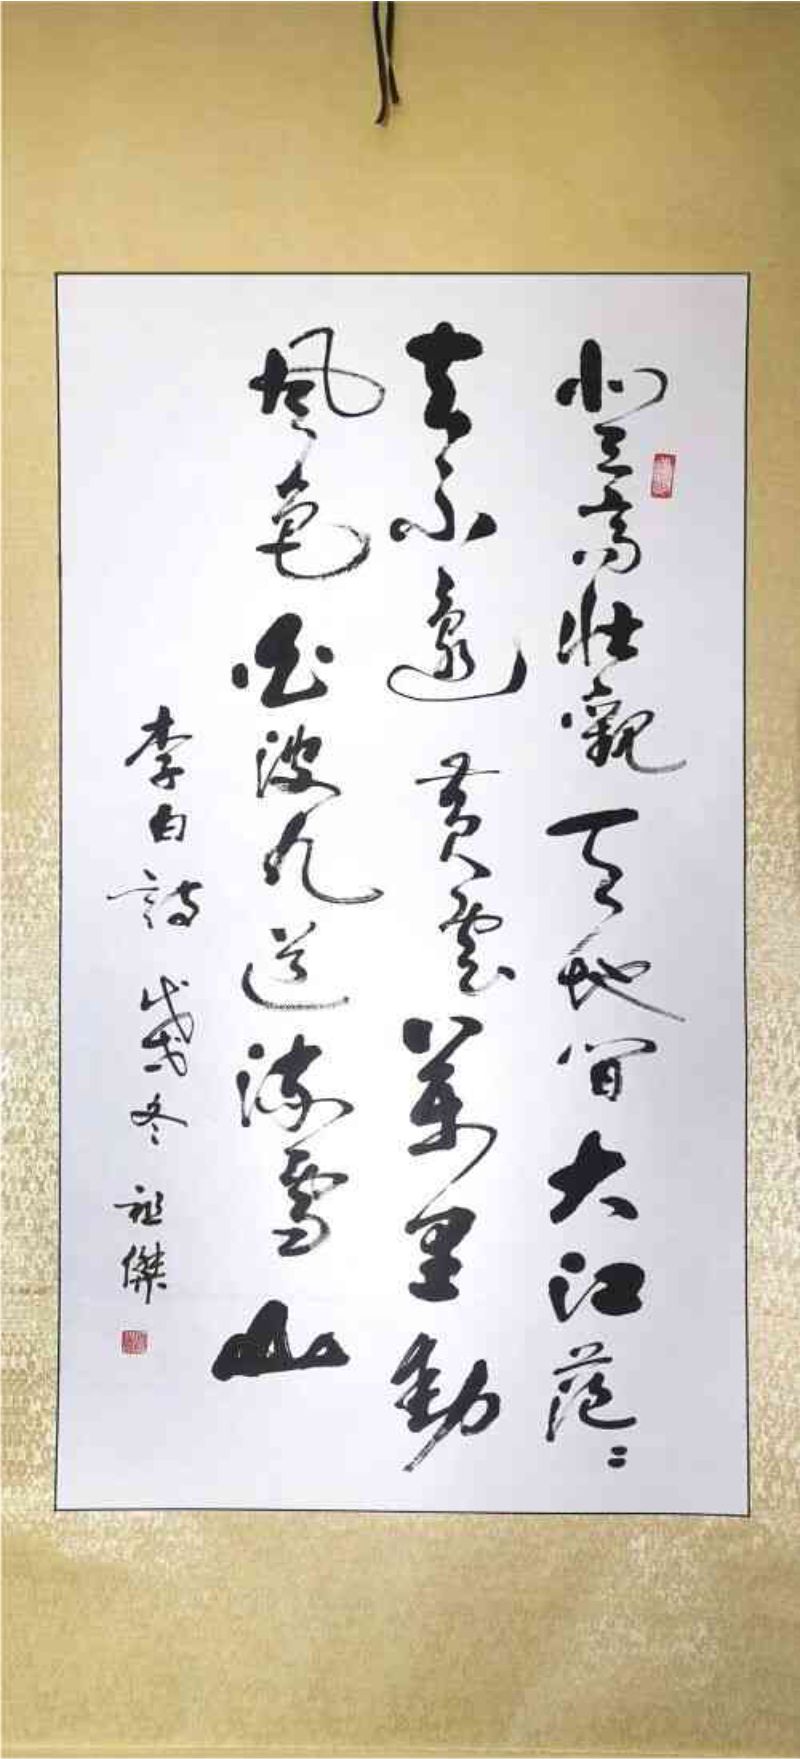 登高壯觀天地間大江茫々
去不還黃雲萬里動
風色白波九道流雪山
李白詩 歲冬 祖傑